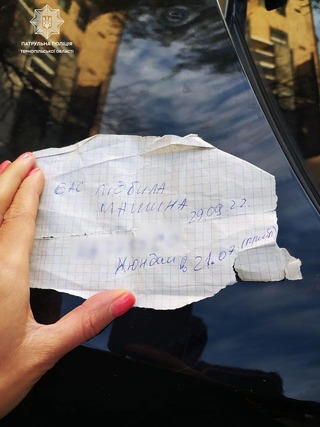 ПАТРУЛЬНА ПОЛІЦІЯ
ТЕРНОПІЛЬСЬКОЇ ОБЛАСТІ
ВАС
МАШИНА 29.09.22.
Хюндай в 21.07